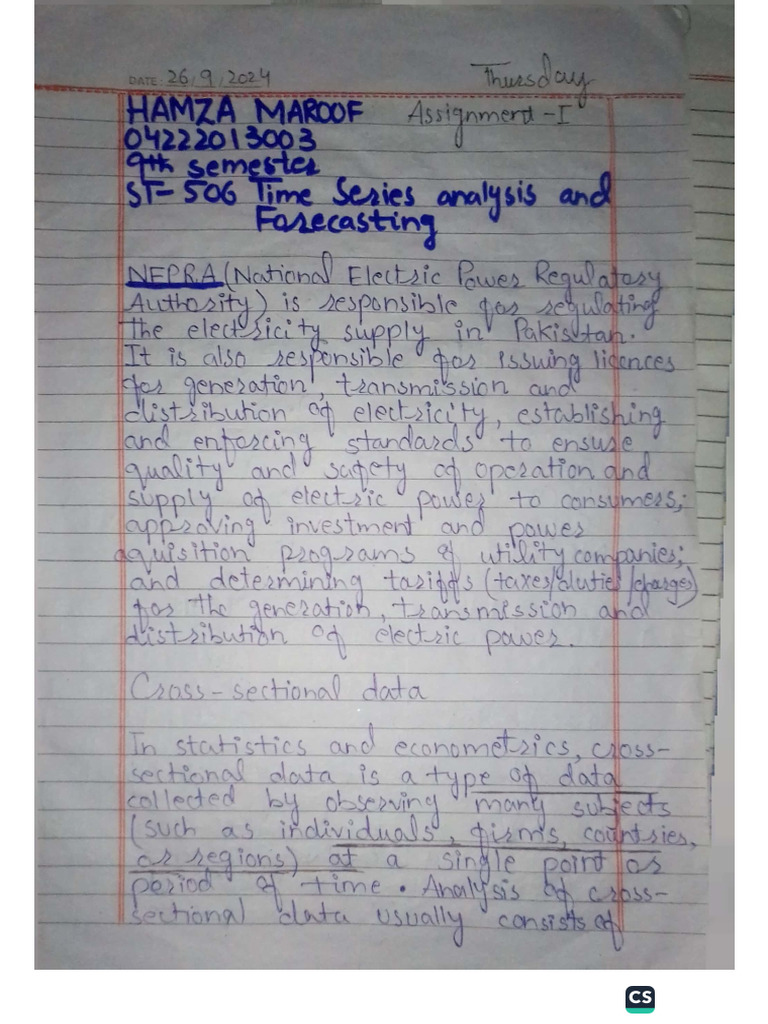 DATE: 26/9/2024 Thursday
HAMZA MAROOF Assignment-I
04222013003
9th semester
ST-506 Time Series analysis and
Forecasting
NEPRA (National Electric Power Regulatory
Authority) is responsible for regulating
the electricity supply in Pakistan.
It is also responsible for issuing licences
for generation, transmission and
distribution of electricity, establishing
and enforcing standards to ensure
quality and safety of operation and
supply of electric power to consumers;
approving investment and power
aquisition programs of utility companies;
and determining tariffs (taxes/duties/charges)
for the generation, transmission and
distribution of electric power.
Cross-sectional data
In statistics and econometrics, cross-
sectional data is a type of data
collected by observing many subjects
(such as individuals, firms, countries,
or regions) at a single point or
period of time. Analysis of cross-
sectional data usually consists of
CS